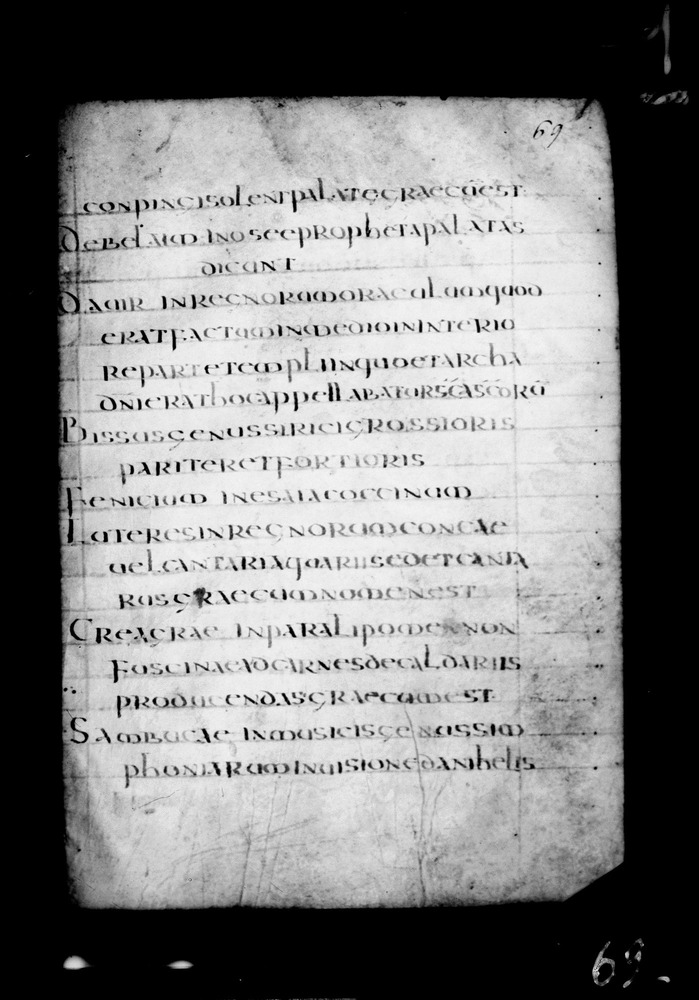 69
conpingisolentpalategraecūest
debelaim inoseeprophetapalatas
dicunt
dabir inregnorumoraculumquod
eratfactuminmedioininterio
repartetempliinquoetarcha
dn̄ieratbocappellabatursc̄asc̄orū
Bissusgenussiricigrossioris
pariteretfortioris
Fenicium inesaiacoccinum
Luteresinregnorumconcae
uelcantariaquariisedetcanta
rusgraecumnomenest
Creagrae inparalipomenon
fuscinaeadcarnesdecaldariis
producendasgraecumest
Sambucae inmusicisgenussim
phoniaruminuisionedanihelis
69